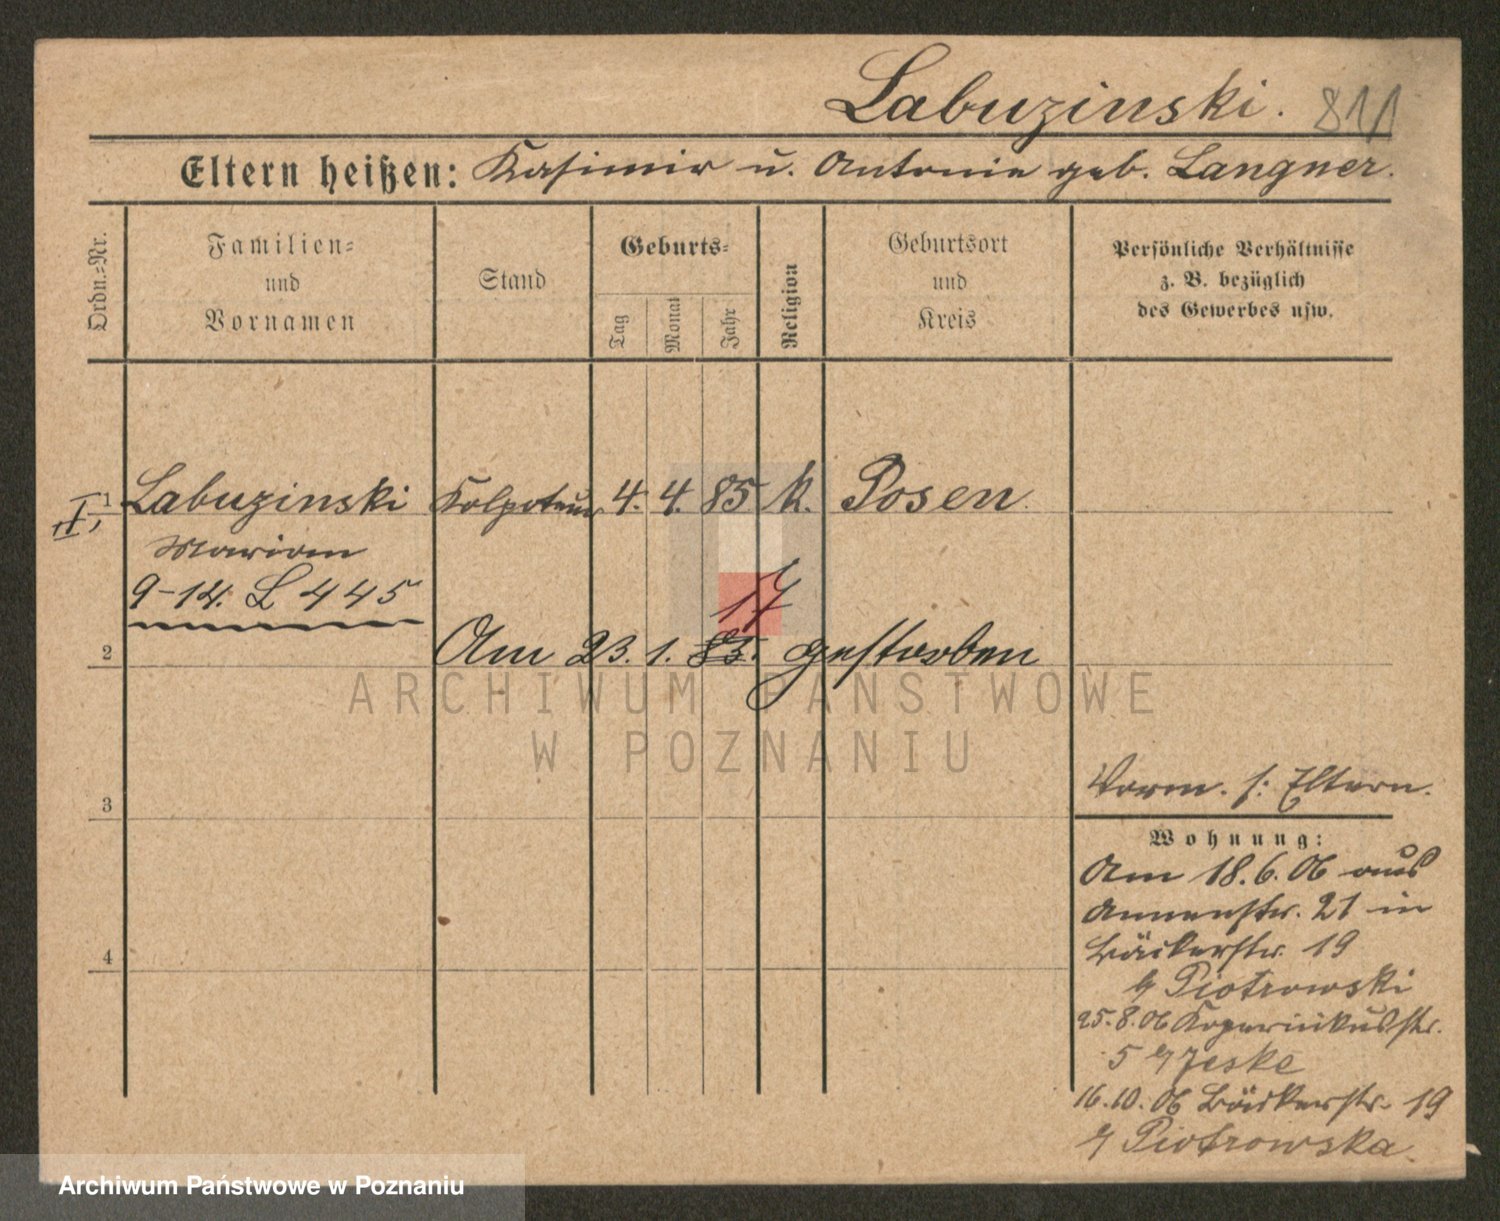 Labuzinski. 811
Eltern heißen: Kasimir u. Antonie geb. Langner.
Ordn.=Nr.
Familien=
und
Vornamen
Stand
Geburts=
Tag
Monat
Jahr
Religion
Geburtsort
und
Kreis
Persönliche Verhältnisse
z. B. bezüglich
des Gewerbes usw.
1 Labuzinski 4. 4. 85 k. Posen
Marian
9-14. L 445
17
2 Am 23. 1. 85. gestorben
ARCHIWUM PAŃSTWOWE
W POZNANIU
3
Vorm. s: Eltern.
Wohnung:
Am 18.6.06 aus
Annenstr. 21 in
Bäckerstr. 19
b/ Piotrowski
4
25.8.06 Kopernikusstr.
5 b/ Jeske
16.10.06 Bäckerstr. 19
b/ Piotrowska.
Archiwum Państwowe w Poznaniu